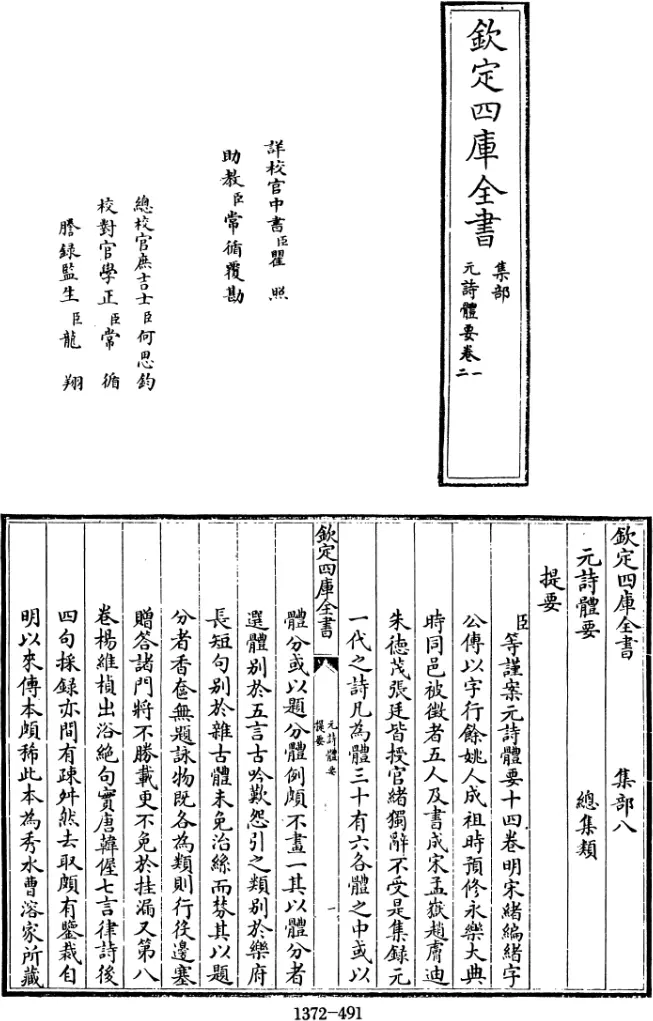 欽定四庫全書
集部
元詩體要卷一
二
詳校官中書臣瞿照
助教臣常循覆勘
總校官庶吉士臣何思鈞
校對官學正臣常循
謄録監生臣龍翔
欽定四庫全書 集部八
元詩體要 總集類
提要
臣等謹案元詩體要十四卷明宋緒編緒字
公傳以字行餘姚人成祖時預修永樂大典
時同邑被徵者五人及書成宋孟嶽趙膚迪
朱德茂張廷皆授官緒獨辭不受是集録元
一代之詩凡為體三十有六各體之中或以
欽定四庫全書
元詩體要
提要
一
體分或以題分體例頗不畫一其以體分者
選體别於五言古吟歎怨引之類别於樂府
長短句别於雜古體未免治絲而棼其以題
分者香奩無題詠物既各為類則行役邊塞
贈答諸門將不勝載更不免於挂漏又第八
卷楊維楨出浴絶句實唐韓偓七言律詩後
四句採録亦間有疎舛然去取頗有鑒裁自
明以來傳本頗稀此本為秀水曹溶家所藏
1372-491